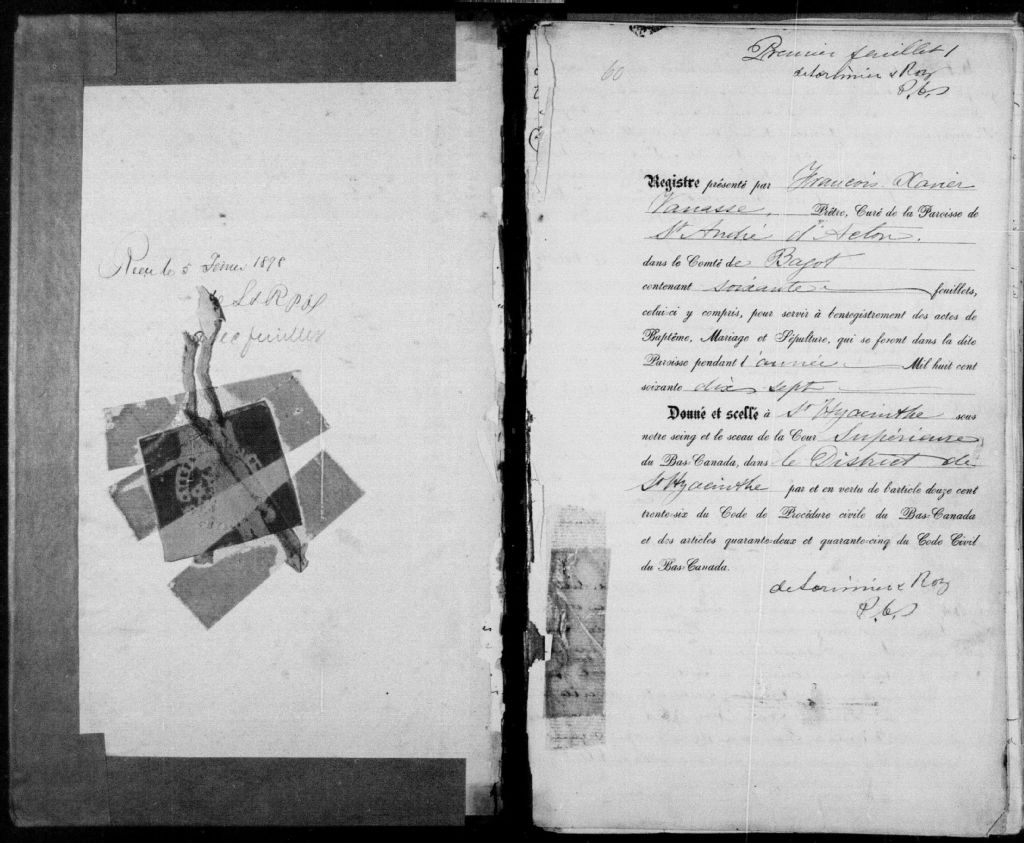 Reçu le 5 Février 1878
feuillets
Premier feuillet 1
60
deLorimier & Roy
P.C.S
Registre présenté par François Xavier
Vanasse, Prêtre, Curé de la Paroisse de
St André d'Acton.
dans le Comté de Bagot
contenant soixante feuillets,
celui-ci y compris, pour servir à l'enregistrement des actes de
Baptême, Mariage et Sépulture, qui se feront dans la dite
Paroisse pendant l'année Mil huit cent
soixante dix sept
Donné et scellé à St Hyacinthe sous
notre seing et le sceau de la Cour Supérieure
du Bas-Canada, dans le District de
St Hyacinthe par et en vertu de l'article douze cent
trente-six du Code de Procédure civile du Bas-Canada
et des articles quarante-deux et quarante-cinq du Code Civil
du Bas-Canada.
deLorimier & Roy
P.C.S